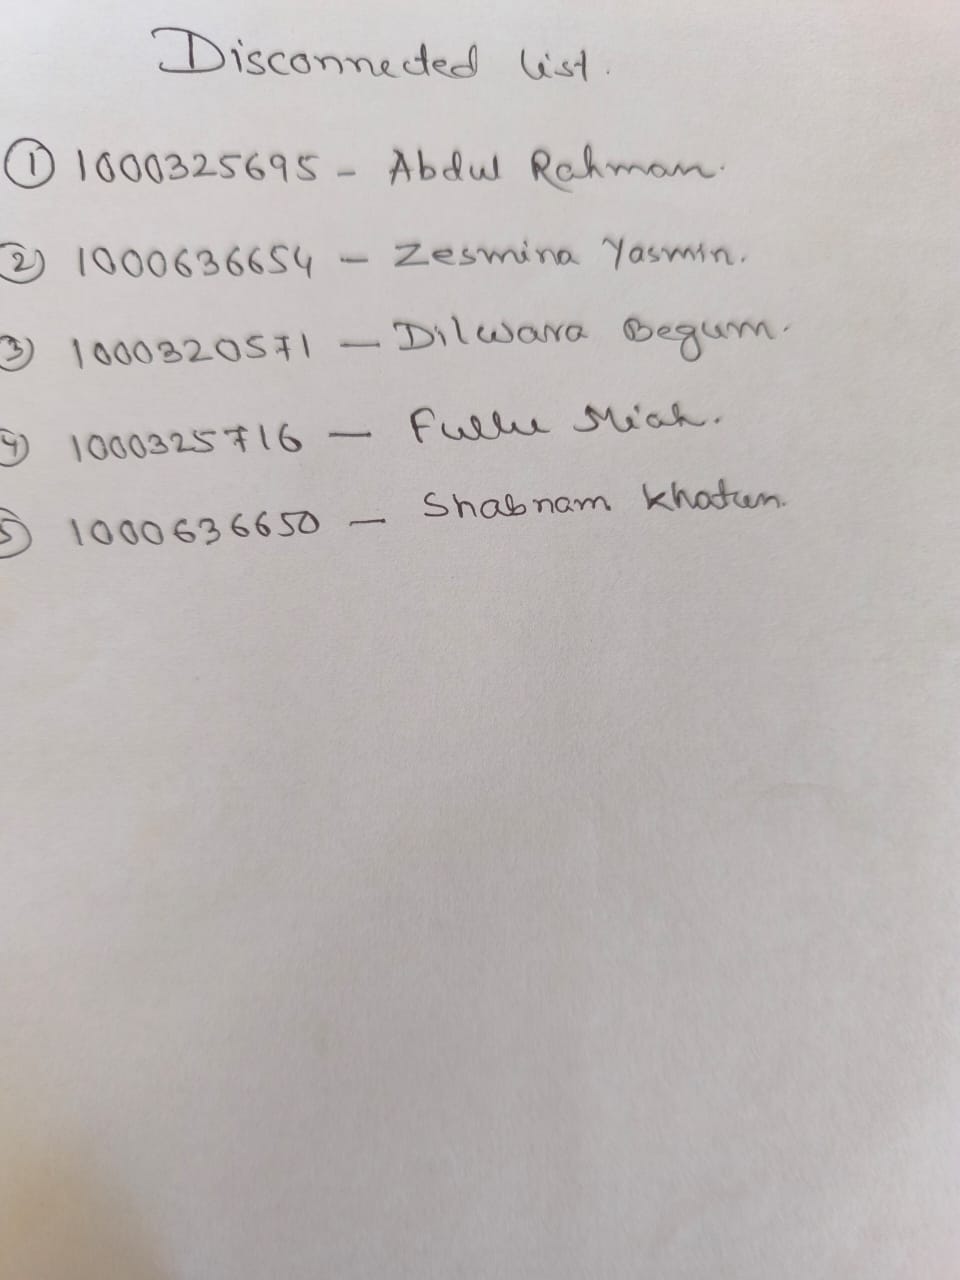 Disconnected list.
① 1000325695 - Abdul Rahman.
② 1000636654 - Zesmina Yasmin.
③ 1000320571 - Dilwara Begum.
④ 1000325716 - Fullu Miah.
⑤ 1000636650 - Shabnam Khatun.